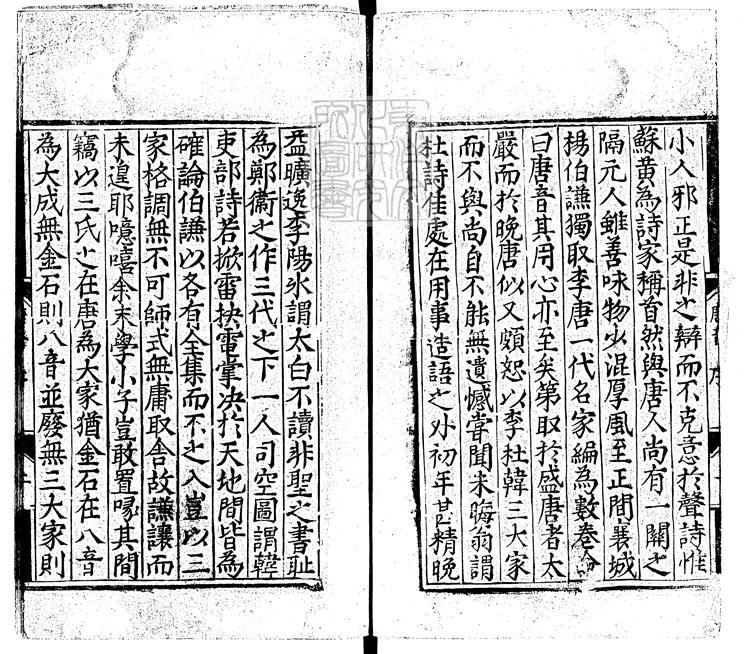 小人邪正是非之辯而不克意扵聲詩惟
蘇黄為詩家稱首然與唐人尚有一關之
隔元人雖善味物少混厚風至正間襄城
楊伯謙獨取李唐一代名家編為數卷
曰唐音其用心亦至矣第取扵盛唐者太
嚴而扵晚唐似又頗恕以李杜韓三大家
而不與尚自不能無遺憾甞聞朱晦翁謂
杜詩佳處在用事造語之外初年甚精晚
益曠逸李陽氷謂太白不讀非聖之書耻
為鄭衞之作三代之下一人司空圖謂韓
吏部詩若掀雷抉電掌决扵天地間皆為
確論伯謙以各有全集而不之入豈以三
家格調無不可師式無庸取舍故謙讓而
未遑耶噫嘻余末學小子豈敢置喙其間
竊以三氏之在唐為大家猶金石在八音
為大成無金石則八音並廢無三大家則